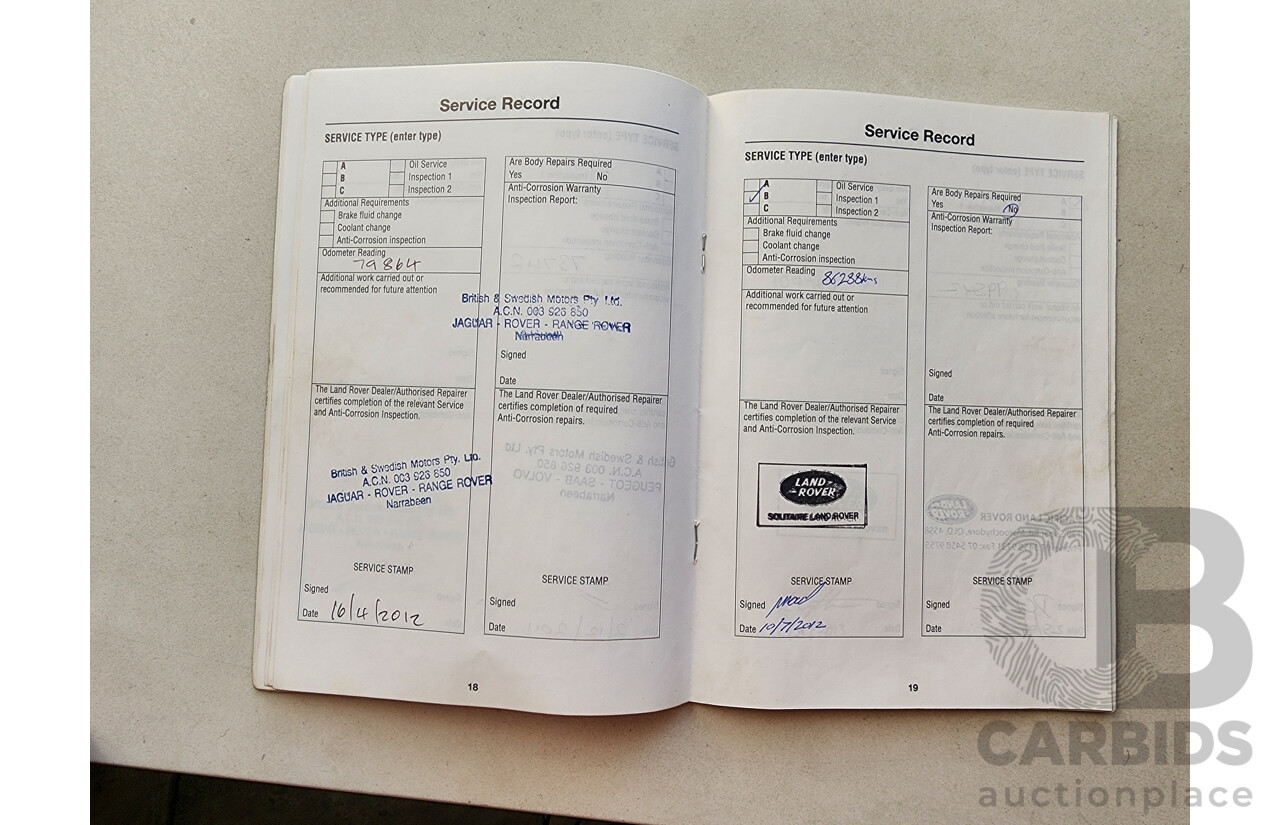 Service Record
SERVICE TYPE (enter type)
A
B
C
Oil Service
Inspection 1
Inspection 2
Additional Requirements
Brake fluid change
Coolant change
Anti-Corrosion inspection
Odometer Reading
79864
Additional work carried out or
recommended for future attention
The Land Rover Dealer/Authorised Repairer
certifies completion of the relevant Service
and Anti-Corrosion Inspection.
British & Swedish Motors Pty. Ltd.
A.C.N. 003 926 850
JAGUAR - ROVER - RANGE ROVER
Narrabeen
SERVICE STAMP
Signed
Date 16/4/2012
Are Body Repairs Required
Yes No
Anti-Corrosion Warranty
Inspection Report:
British & Swedish Motors Pty. Ltd.
A.C.N. 003 926 850
JAGUAR - ROVER - RANGE ROVER
Narrabeen
Signed
Date
The Land Rover Dealer/Authorised Repairer
certifies completion of required
Anti-Corrosion repairs.
SERVICE STAMP
Signed
Date
18
Service Record
SERVICE TYPE (enter type)
A
B
C
Oil Service
Inspection 1
Inspection 2
Additional Requirements
Brake fluid change
Coolant change
Anti-Corrosion inspection
Odometer Reading
86288kms
Additional work carried out or
recommended for future attention
The Land Rover Dealer/Authorised Repairer
certifies completion of the relevant Service
and Anti-Corrosion Inspection.
LAND-
-ROVER
SOLITAIRE LAND ROVER
SERVICE STAMP
Signed
Date 10/7/2012
Are Body Repairs Required
Yes No
Anti-Corrosion Warranty
Inspection Report:
Signed
Date
The Land Rover Dealer/Authorised Repairer
certifies completion of required
Anti-Corrosion repairs.
SERVICE STAMP
Signed
Date
19
CB
CARBIDS
auctionplace